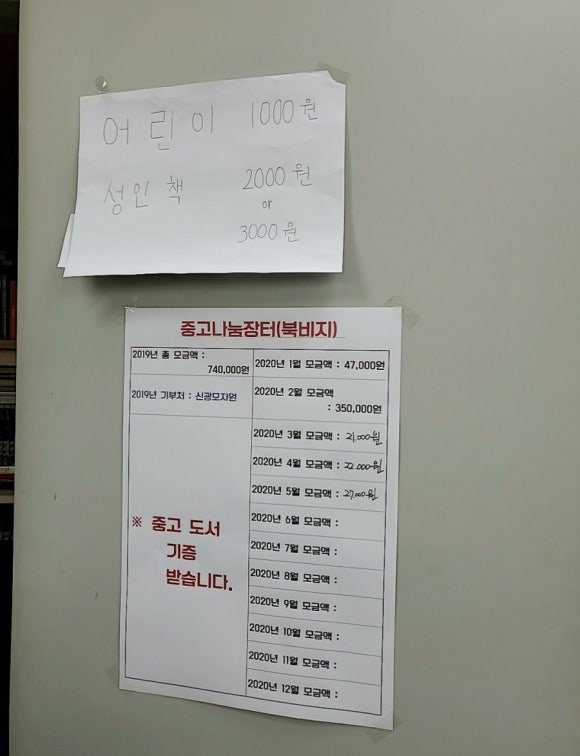 어린이 1000원
성인 책 2000원
or
3000원
중고나눔장터(북비지)
2019년 총 모금액 :
740,000원
2019년 기부처 : 신광모자원
※ 중고 도서
기증
받습니다.
2020년 1월 모금액 : 47,000원
2020년 2월 모금액
: 350,000원
2020년 3월 모금액 : 21,000원
2020년 4월 모금액 : 22,000원
2020년 5월 모금액 : 27,000원
2020년 6월 모금액 :
2020년 7월 모금액 :
2020년 8월 모금액 :
2020년 9월 모금액 :
2020년 10월 모금액 :
2020년 11월 모금액 :
2020년 12월 모금액 :